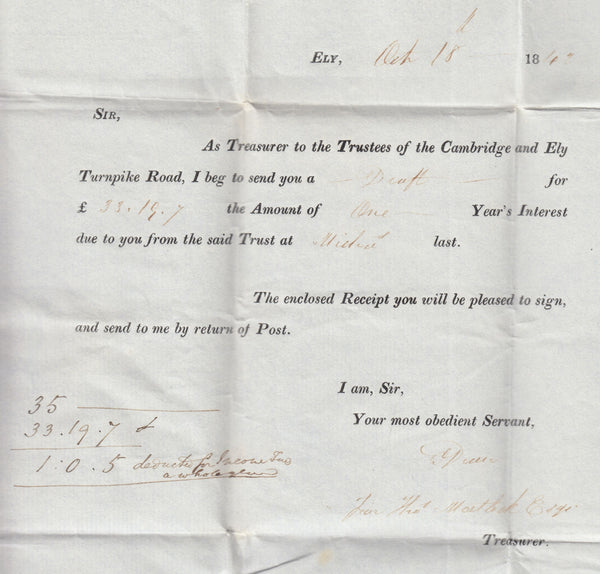 ELY, Oct 18th 184
SIR,
As Treasurer to the Trustees of the Cambridge and Ely
Turnpike Road, I beg to send you a Draft for
£ 33.19.7 the Amount of One Year's Interest
due to you from the said Trust at Michs last.
The enclosed Receipt you will be pleased to sign,
and send to me by return of Post.
I am, Sir,
Your most obedient Servant,
for Thos Esqr
Treasurer.
35
33.19.7
1:0.5 deducted for Income Tax
a whole year